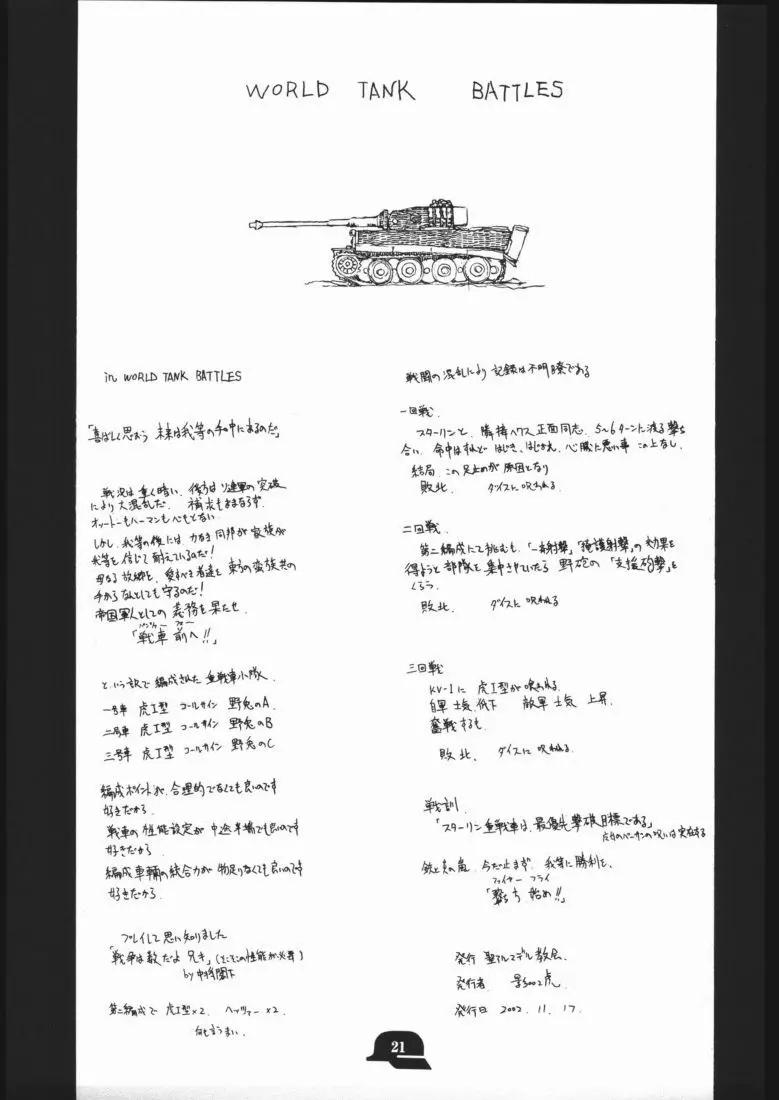 WORLD TANK BATTLES
in WORLD TANK BATTLES
「喜ばしく思おう 未来は我等の手中にあるのだ」
戦況は重く暗い、後方はソ連軍の突破
により大混乱だ。 補求もままならず、
オットーもハーマンも
しかし、我等の後には 力なき同邦が 家族が
我等を信じて耐えているのだ!
母なる故郷と、愛すべき者達を 東方の蛮族共の
手から なんとしても守るのだ!
帝国軍人としての 義務を果たせ
パンツァー フォー
「戦車 前へ!!」
という訳で 編成された 重戦車小隊
一号車 虎I型 コールサイン 野兎のA
二号車 虎I型 コールサイン 野兎のB
三号車 虎I型 コールサイン 野兎のC
編成ポイントが、合理的でなくても良いのです
好きだから
戦車の性能設定が 中途半端でも良いのです
好きだから
編成車輛の統合力が 物足りなくても良いのです
好きだから
プレイして思い知りました
「戦争は数だよ 兄キ」(そこそこの性能が必要)
by 中将閣下
第二編成で 虎I型×2 ヘッツァー×2
何も言うまい.
戦闘の混乱により 記録は不明瞭である
一回戦.
スターリンと、隣接ヘクス正面同志、5~6ターンに渡る撃ち
合い、命中はすれど はじき、はじかれ、心臓に悪い事 この上なし、
結局、この足止めが原因となり
敗北、 ダイスに呪われる
二回戦.
第二編成にて挑むも、「一斉射撃」「掩護射撃」の効果を
得ようと部隊を集中させていたら 野砲の「支援砲撃」を
くらう.
敗北. ダイスに呪われる
三回戦
KV-1に 虎I型が喰われる.
自軍 士気 低下 敵軍 士気 上昇.
奮戦するも
敗北、ダイスに呪われる.
戦訓
「スターリン重戦車は、最優先撃破目標である」
の呪いは実在する
鉄と炎の嵐、今だ止まず、我等に勝利を、
ファイヤー フライ
「撃ち 始め!!」
発行
発行者
発行日 2002. 11. 17.
21